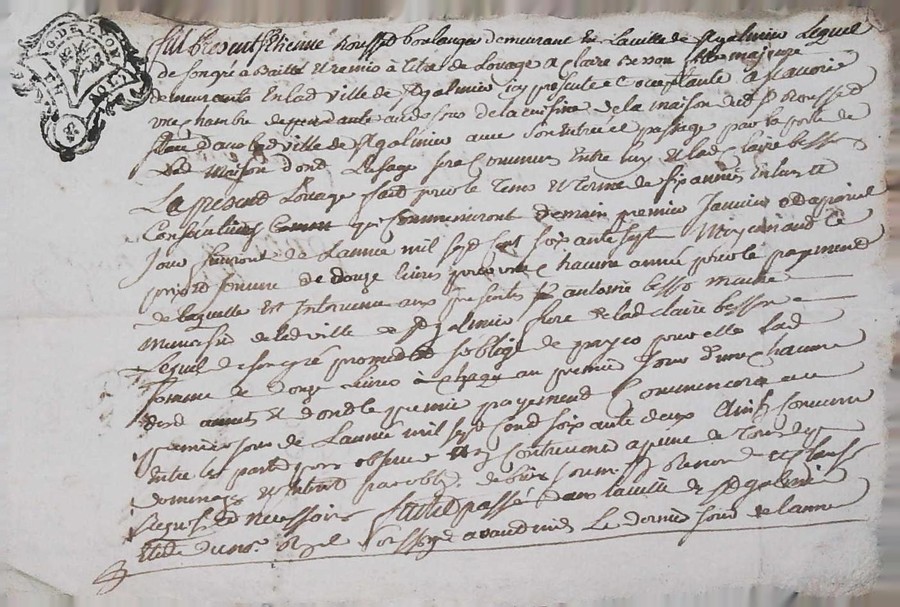 G. DE LYON
fut present Etienne Rousset boulanger demeurant en la ville de St galmier Lequel
de son gré a baillé et remis à titre de Louage a claire besson fille majeure
demeurante en lad ville de St galmier icy presente et acceptante a scavoir
une chambre dependante au dessus de la cuisine de la maison dud Sr Rousset
située dans lad ville de St galmier avec son entrée et passage par la porte de
lad maison dont l'usage sera commun entre luy et lad claire besson
Le present Louage fait pour le tems et terme de six années entieres et
consecutives qui commenceront demain premier Janvier et a pareil
jour finiront de l'année mil sept cent soixante sept moyennant le
prix et somme de douze livres pour chacune année pour le payement
de laquelle est intervenu aux presentes Sr antoine besson marchand
de lad ville de St galmier frere de lad claire besson
Lequel de son gré promet et s'oblige de payer pour elle lad
somme de douze livres à chaque premier jour d'une chacune
desd années et dont le premier payement commencera au
premier jour de l'année mil sept cent soixante deux Ainsi convenu
entre les parties pour observer et n'y contrevenir a peine de tous depens
dommages et interets par oblig. de biens soumission renon. et clauses
requises et necessaires fait et passé dans la ville de St galmier
étude du no. royal soussigné avant midi le dernier jour de l'année